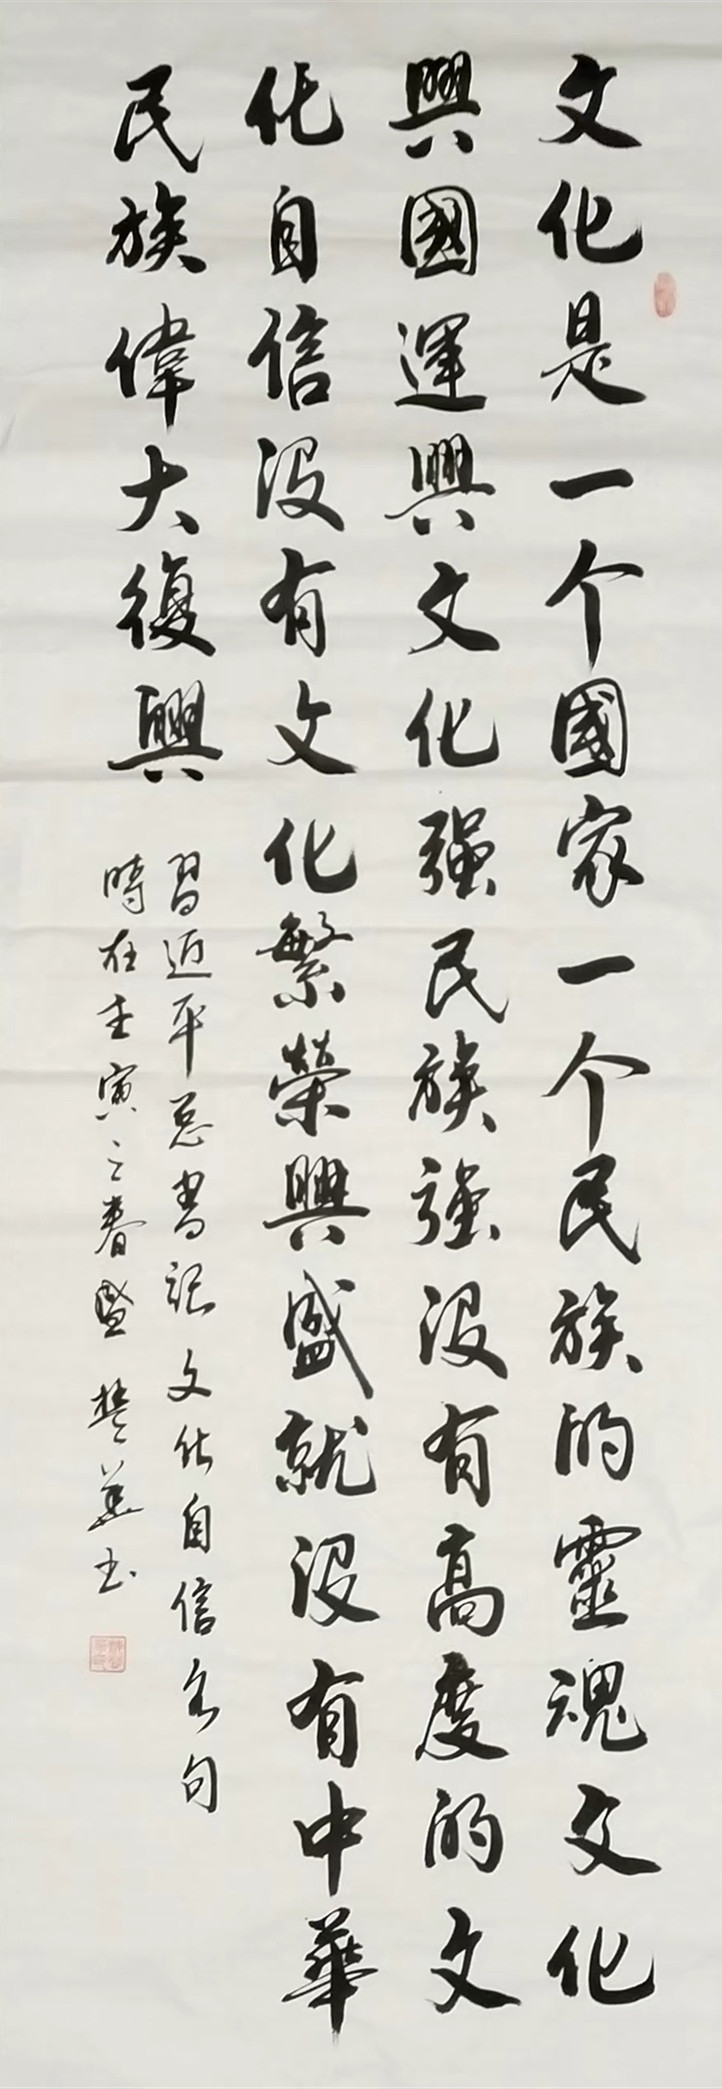 文化是一个國家一个民族的靈魂文化
興國運興文化强民族强没有高度的文
化自信没有文化繁榮興盛就没有中華
民族偉大復興
習近平总書記文化自信名句
時在壬寅之春盛楚美书